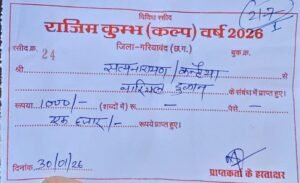 विविध रसीद
राजिम कुम्भ (कल्प) वर्ष 2026
रसीद क्र. 24 जिला-गरियाबंद (छ.ग.) बुक क्र.
श्री सत्यनारायण / कन्हैया से
नारियल दुकान के संबंध में प्राप्त
रूपया 1000/- (शब्दों में) रू. पैसे
एक हजार/- रूपये प्राप्त हुए।
दिनांक 30/01/26 प्राप्तकर्ता के हस्ताक्षर